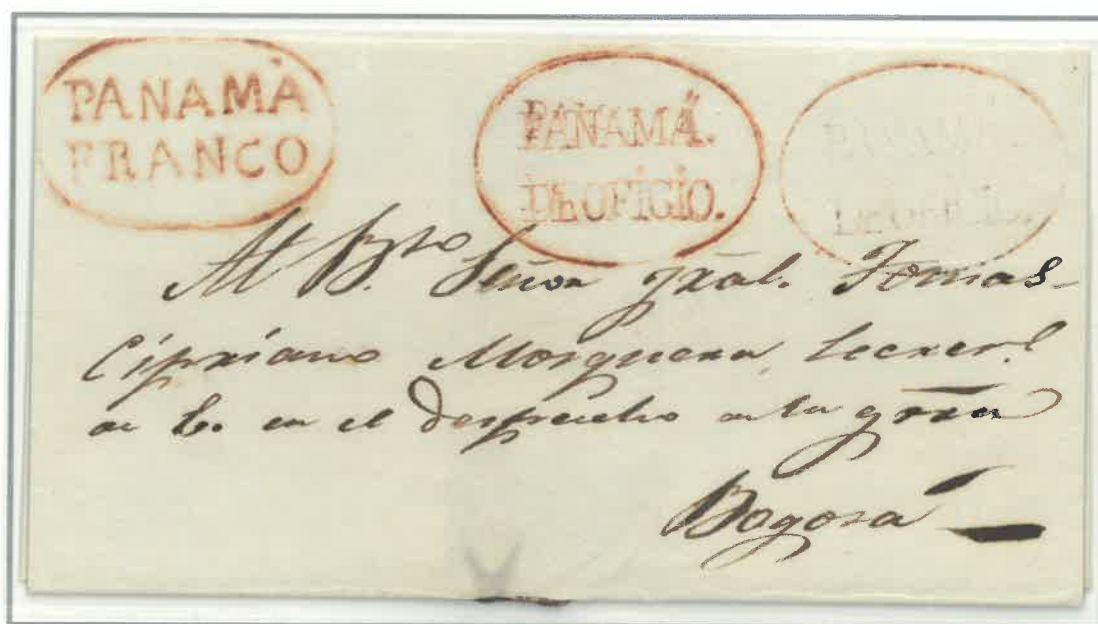 PANAMÁ
FRANCO
PANAMÁ.
DE OFICIO.
PANAMÁ.
DE OFICIO.
Al Bto. Señor gral. Tomas
Cipriano Mosquera, Secret.
de E. en el despacho de la grra
Bogotá